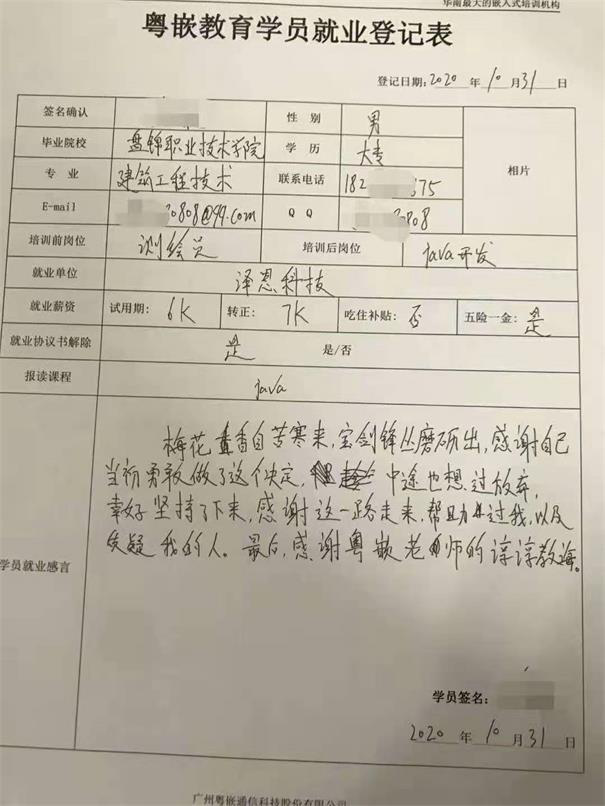 华南最大的嵌入式培训机构
粤嵌教育学员就业登记表
登记日期:2020 年 10 月 31 日
签名确认 性 别 男
毕业院校 盘锦职业技术学院 学 历 大专 相片
专 业 建筑工程技术 联系电话 182 675
E-mail 0808@qq.com Q Q 0808
培训前岗位 测绘员 培训后岗位 Java开发
就业单位 泽恩科技
就业薪资 试用期: 6K 转正: 7K 吃住补贴: 否 五险一金: 是
就业协议书解除 是 是/否
报读课程 Java
梅花香自苦寒来,宝剑锋从磨砺出,感谢自己
当初勇敢做了这个决定, 中途也想过放弃,
幸好坚持了下来,感谢这一路走来,帮助过我,以及
质疑我的人。最后,感谢粤嵌老师的谆谆教诲。
学员就业感言
学员签名:
2020 年 10 月 31 日
广州粤嵌通信科技股份有限公司